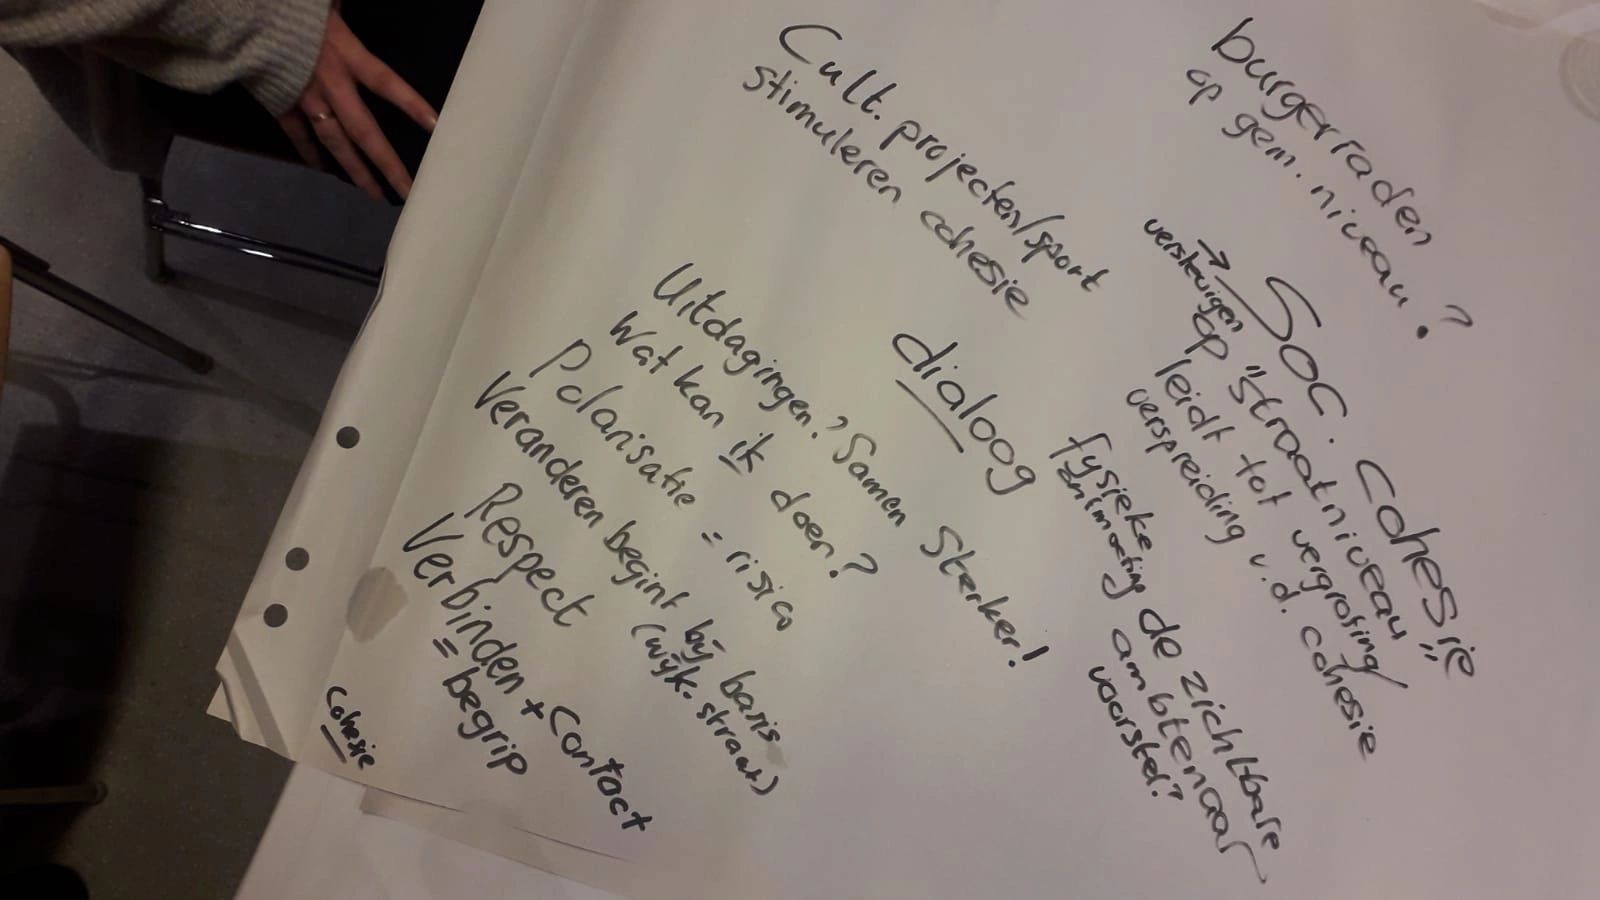 burgerraden
op gem. niveau?
Cult. projecten/sport
stimuleren cohesie
→ Soc. cohesie
verstevigen
op "straatniveau"
leidt tot vergroting/
verspreiding v.d. cohesie
dialoog
fysieke
ontmoeting
de zichtbare
ambtenaar
voorstel?
Uitdagingen? Samen Sterker!
Wat kan ik doen?
Polarisatie = risico
Veranderen begint bij basis
(wijk-straat)
Respect
Verbinden + Contact
= begrip
Cohesie